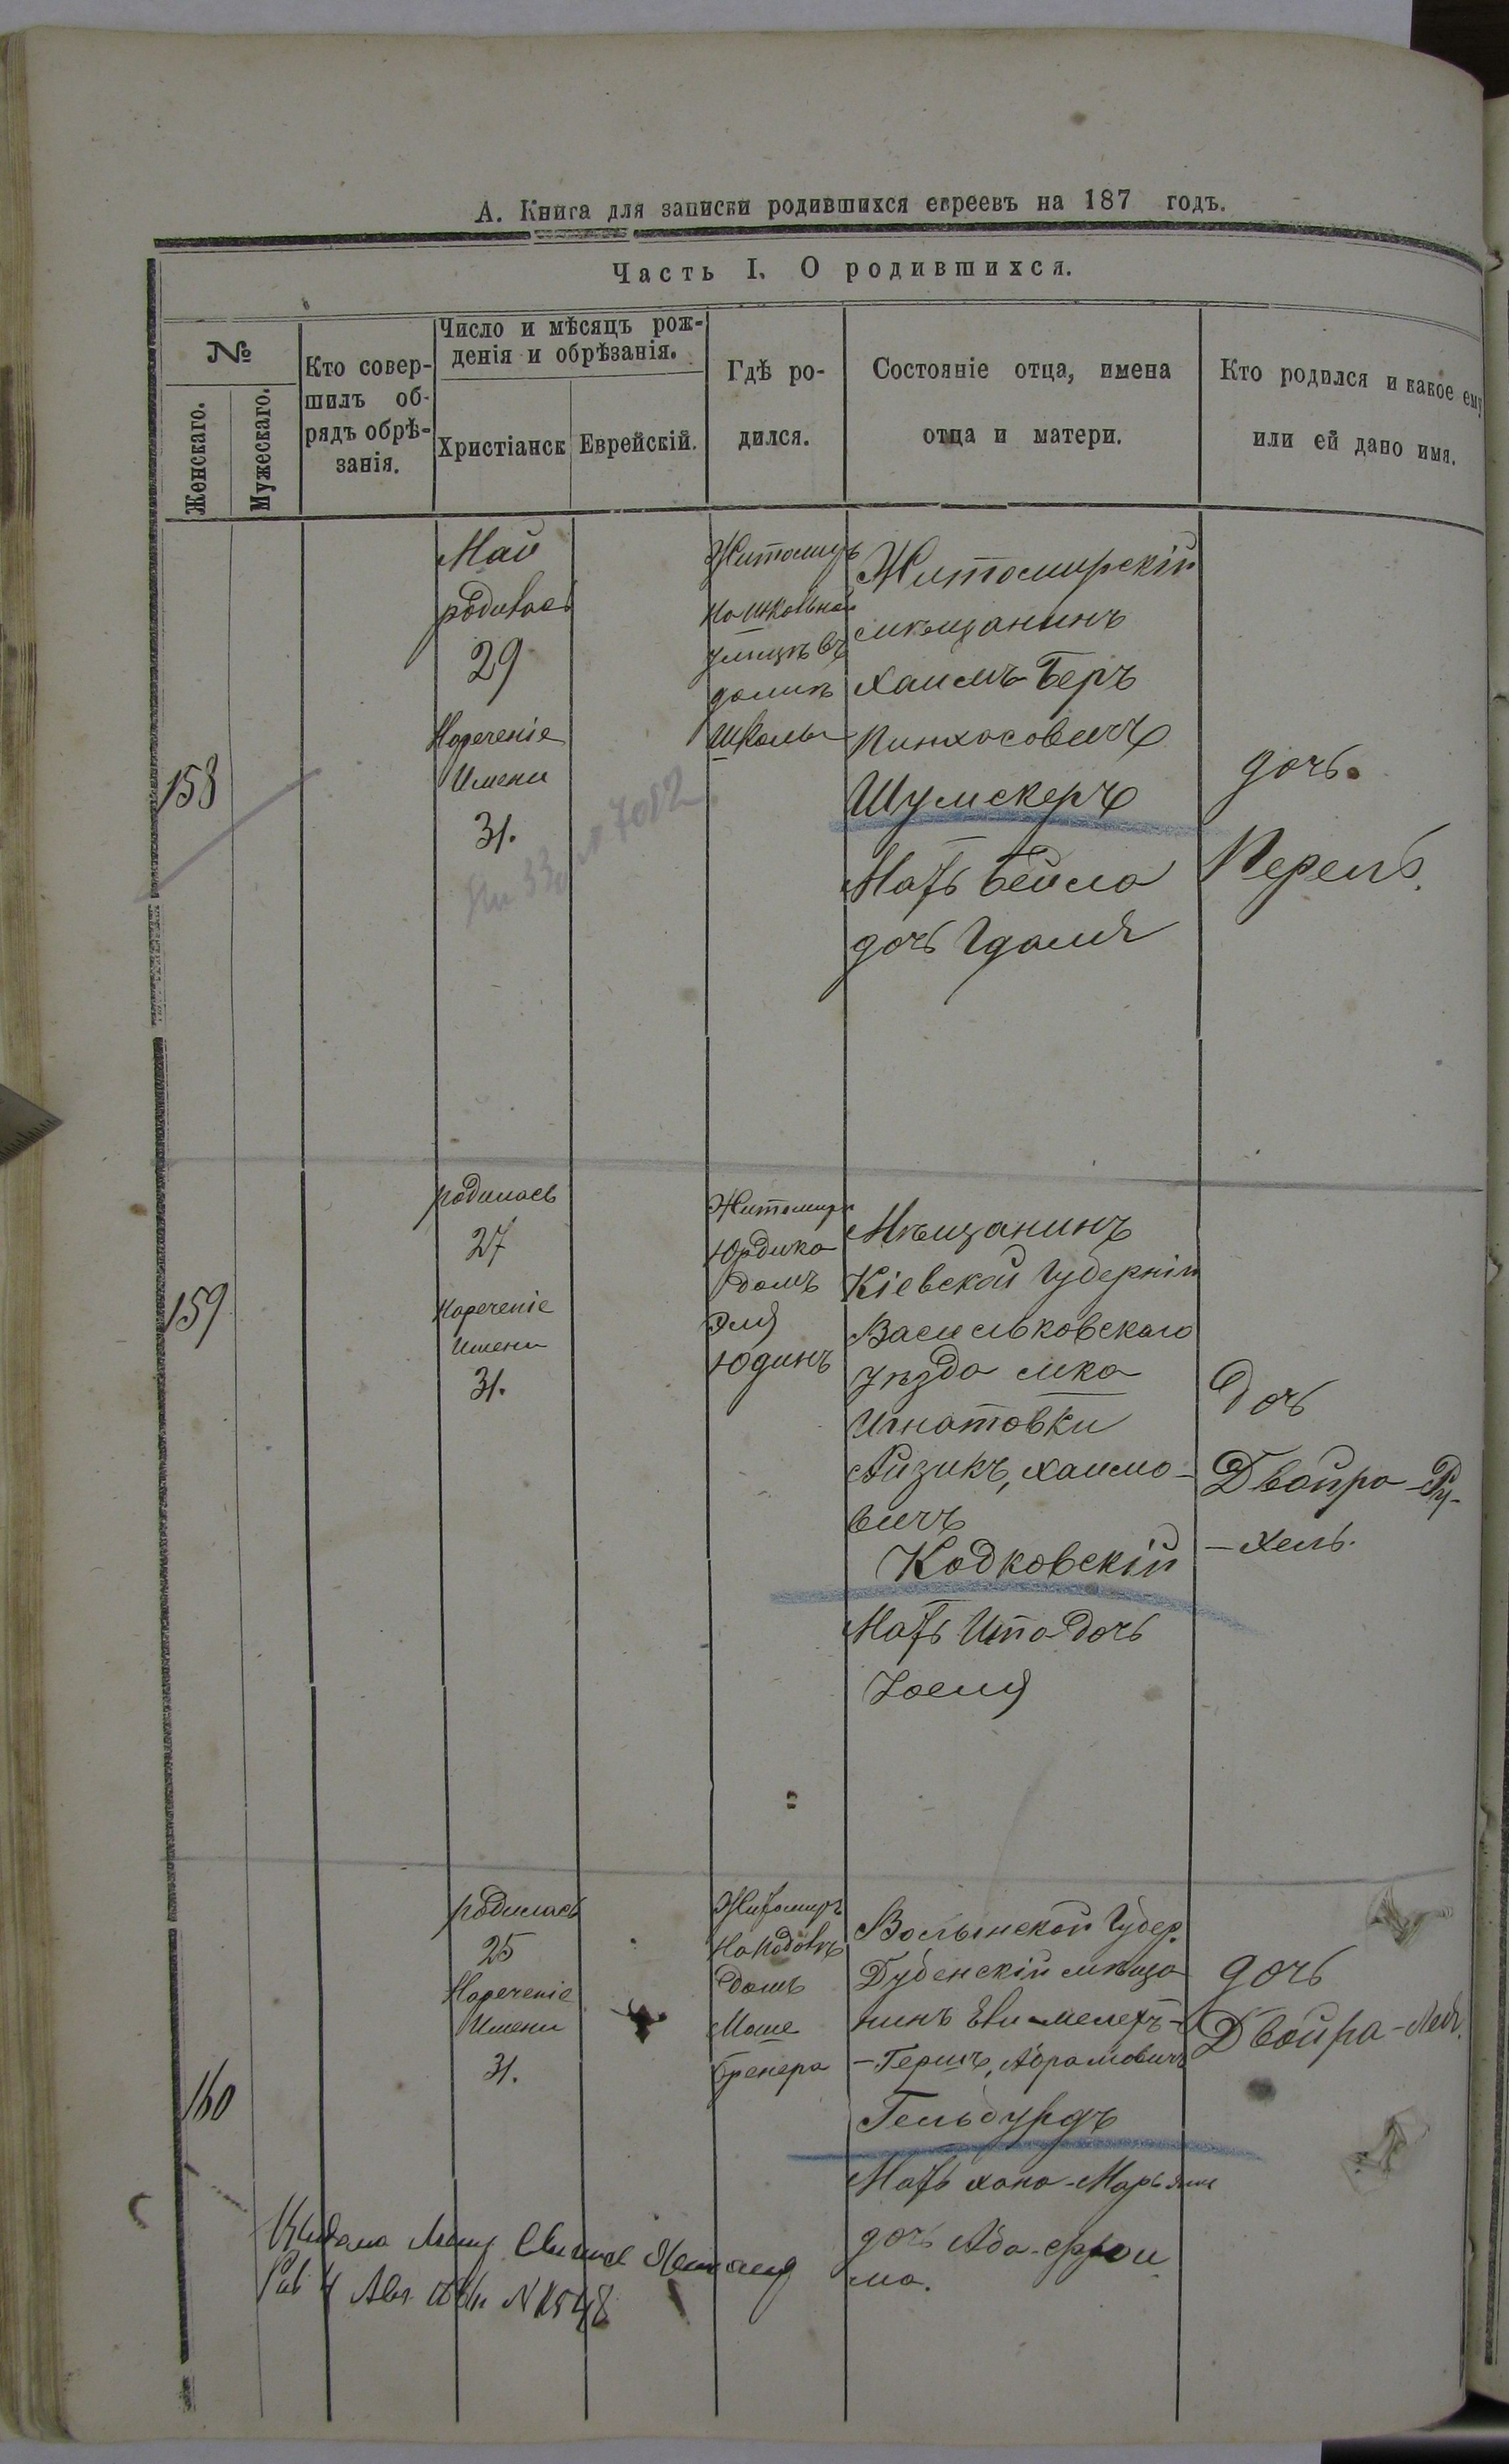 А. Книга для записки родившихся евреевъ на 187 годъ.
Часть I. О родившихся.
№
Женскаго.
Мужескаго.
Кто совер-
шилъ об-
рядъ обрѣ-
занія.
Число и мѣсяцъ рож-
денія и обрѣзанія.
Христіанск
Еврейскій.
Гдѣ ро-
дился.
Состояніе отца, имена
отца и матери.
Кто родился и какое ему
или ей дано имя.
158
Май
родилась
29
Нареченіе
Имени
31.
№ 7012
Житомиръ
на школьной
улицѣ въ
домѣ
школы
Житомирскій
мѣщанинъ
Хаимъ-Беръ
Пинхасовичъ
Шумскеръ
Мать Бейла
дочь Гдаля
дочь.
Перель.
159
родилась
27
нареченіе
имени
31.
Житомиръ
Юрдика
домъ
Эля
Юдинъ
Мѣщанинъ
Кіевской Губерніи
Васильковскаго
уѣзда мка
Игнатовки
Айзикъ, Хаимо-
вичъ
Кодковскій
Мать Ита дочь
Іоеля
дочь
Двойра-Ру-
-хель.
160
родилась
25
Нареченіе
Имени
31.
Житомиръ
домъ
Моше
Бренера
Волынской Губер.
Дубенскій мѣща
нинъ Елимелехъ-
-Гершъ, Абрамовичъ
Гельбурдъ
Мать Хана-Марьям
дочь Аба-Ефрои
ма.
дочь
Двойра-Лея.